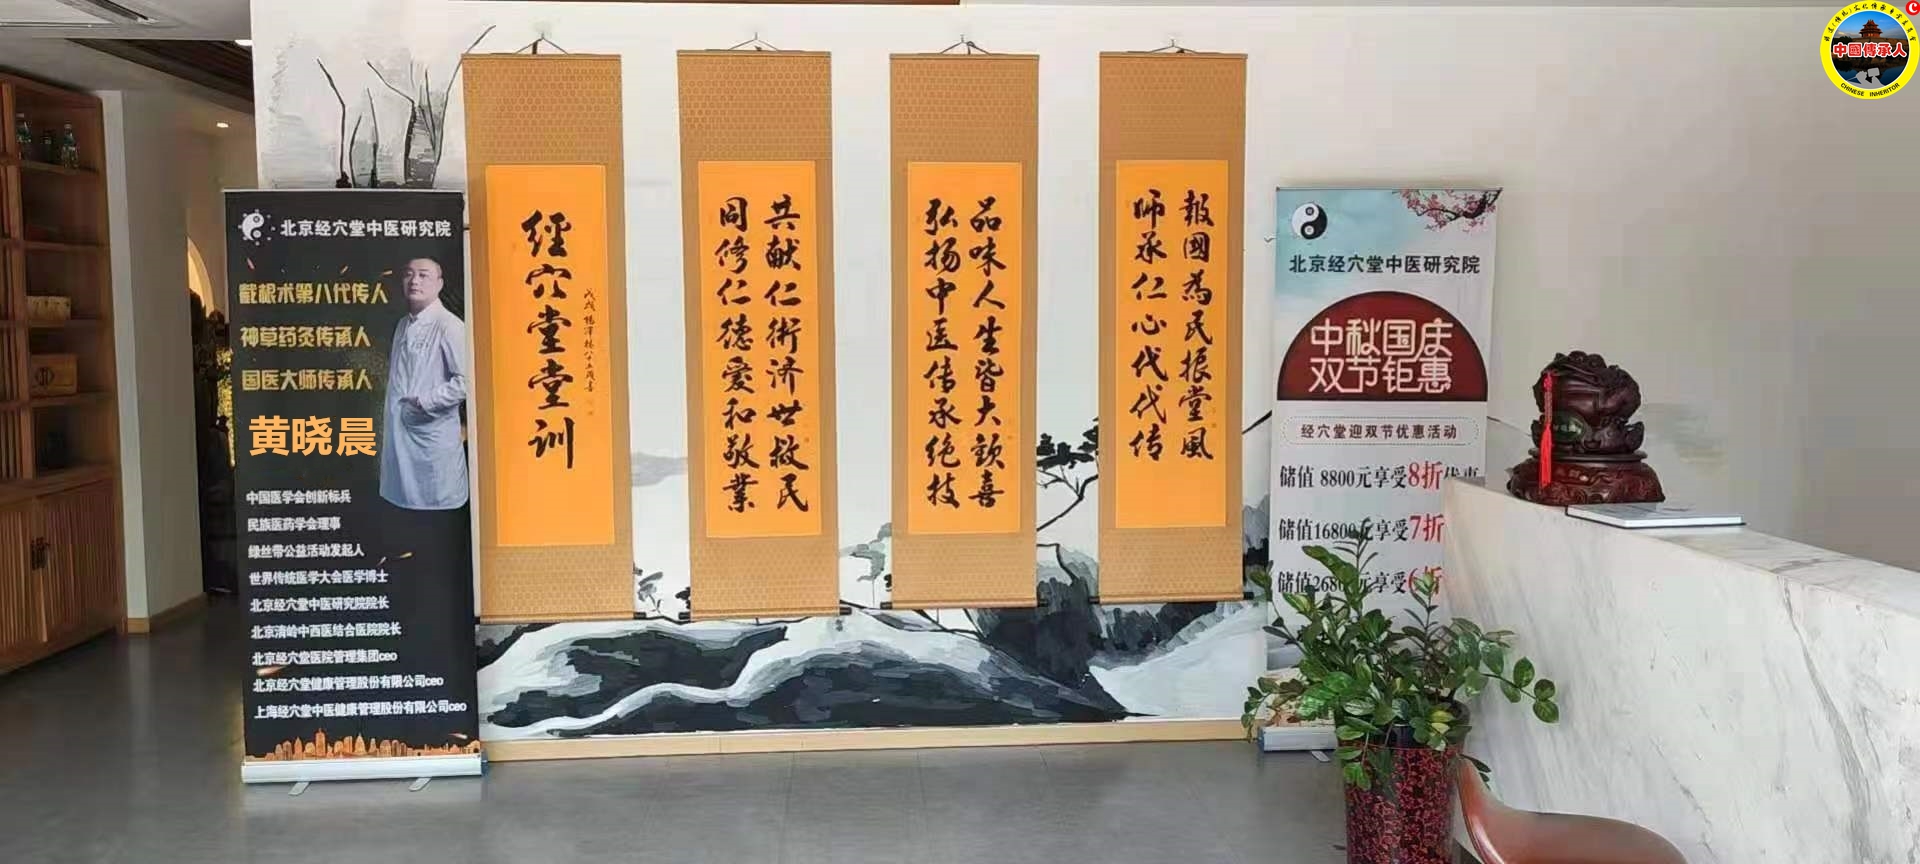 北京经穴堂中医研究院
戳根术第八代传人
神草药灸传承人
国医大师传承人
黄晓晨
中国医学会创新标兵
民族医药学会理事
绿丝带公益活动发起人
世界传统医学大会医学博士
北京经穴堂中医研究院院长
北京清岭中西医结合医院院长
北京经穴堂医院管理集团ceo
北京经穴堂健康管理股份有限公司ceo
上海经穴堂中医健康管理股份有限公司ceo
經穴堂堂训
共献仁術济世救民
同修仁德爱和敬業
品味人生皆大欢喜
弘扬中医传承绝技
報國為民振堂風
师承仁心代代传
北京经穴堂中医研究院
中秋国庆
双节钜惠
经穴堂迎双节优惠活动
储值 8800元享受8折
储值16800元享受7折
储值2680元享受6折
中國傳承人
CHINESE INHERITOR